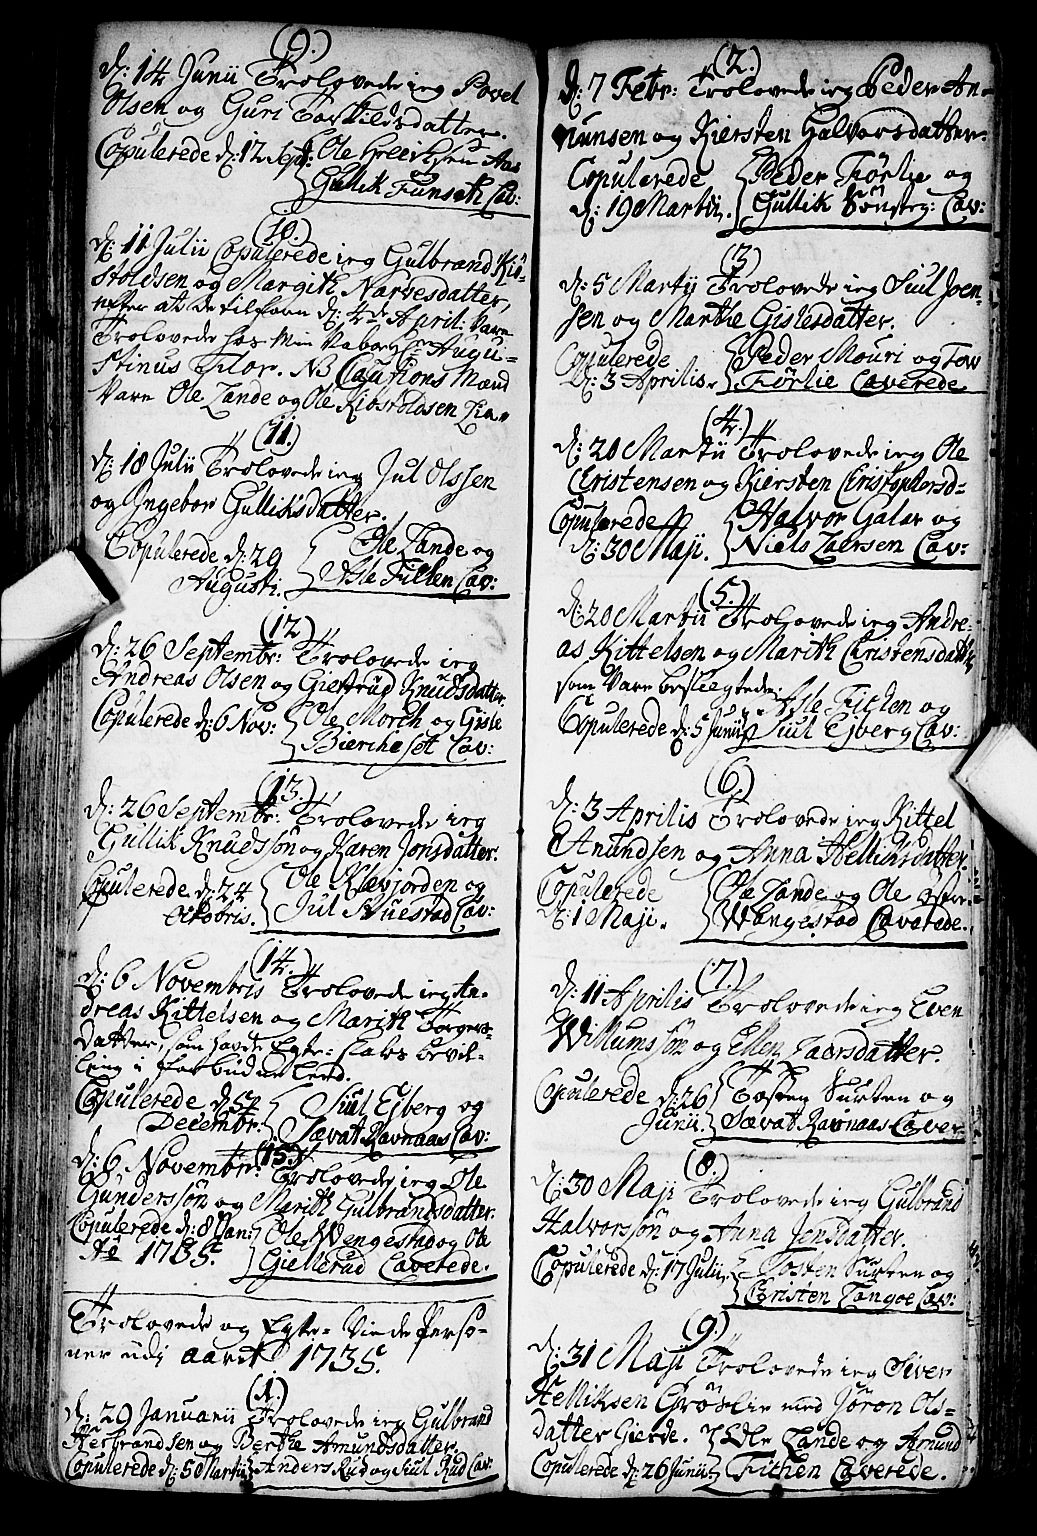 (9.)
d: 14 Junii Trolovede ieg Povel
Olsen og Guri Torkildsdatter.
Copulerede d: 12 Sept: Ole
Gullik Funseth Cav:
(10.)
d: 11 Julii Copulerede ieg Gulbrand Kib-
stoldsen og Margith Narvesdatter,
efter at de tilforn d: 4de April: Vare
Trolovede hos Min Nabo Hr Augu-
stinus Flor. NB Cautions Mænd
Vare Ole Lande og Ole Kibstoldsen Lia
(11.)
d: 18 Julii Trolovede ieg Jul Olssen
og Yngebor Gulliksdatter.
Copulerede d: 29 Ole Lande og
Augusti. Asle Fitlen Cav:
(12)
d: 26 Septembr: Trolovede ieg
Andreas Olsen og Giertrud Knudsdatter.
Copulerede d: 6 Nov: Ole Morch og Gisle
Bierchesét Cav:
(13.)
d: 26 Septembr: Trolovede ieg
Gullik Knudssön og Karen Jonsdatter.
Copulerede d: 24 Ole Klevjorden og
Octobris. Jul Stuestad Cav:
(14.)
d: 6 Novembris Trolovede ieg An-
dreas Kittelsen og Marith Torgers-
datter, som havde Egte-skabs bevil-
ling i forbudne leed.
Copulerede d: Siul Ejberg og
Decembr: Sævat Ravnaas Cav:
(15.)
d: 6 Novembr: Trolovede ieg Ole
Gunderssön og Marith Gulbrandsdatter.
Copulerede d: 8 Jan: Ole Wengestad og Ole
Aö 1735. Giellerud Caverede.
Trolovede og Egte-Viede Perso-
ner udi aaret 1735.
(1.)
d: 29 Januarii Trolovede ieg Gulbrand
Herbrandsen og Berthe Amundsdatter.
Copulerede d: 5 Martii Anders Rud og Siul Rud Cav:
(2.)
d: 7 Febr: Trolovede ieg Peder An-
nunsen og Kiersten Halvorsdatter.
Copulerede Peder Förlie og
d: 19 Martii. Gullik Sönsteg: Cav:
(3)
d: 5 Martij Trolovede ieg Siul Joen-
sen og Marthe Gislesdatter.
Copulerede Peder Mouri og Tov
d: 3 Aprilis. Förlie Caverede
(4.)
d: 20 Martii Trolovede ieg Ole
Christensen og Kiersten Christophersd-
Copulerede Halvor Galar og
d: 30 Maji. Niels Laersen Cav:
(5.)
d: 20 Martii Trolovede ieg Andre-
as Kittelsen og Marith Christensdatter,
som Vare besliegtede. Asle Fithen og
Copulerede d: 5 Junii Siul Ejberg Cav:
(6.)
d: 3 Aprilis Trolovede ieg Kittel
Anundsen og Anna Helliksdatter.
Copulerede Ole Lande og Ole
d: 1 Maji. Wangestad Caverede.
(7.)
d: 11 Aprilis Trolovede ieg Even
Willumssön og Ellen Laersdatter.
Copulerede d: 26 Tosten Surten og
Junii. Sævat Ravnaas Caver:
(8.)
d: 30 Maji Trolovede ieg Gulbrand
Halvorssön og Anna Jonsdatter.
Copulerede d: 17 Julii Tosten Surten og
Christen Langoe Cav:
(9.)
d: 31 Maji Trolovede ieg Siver
Helliksen Gröslie med Jöron Ols-
datter Gierde. Ole Lande og Amund
Copulerede d: 26 Junii Fithen Caverede.